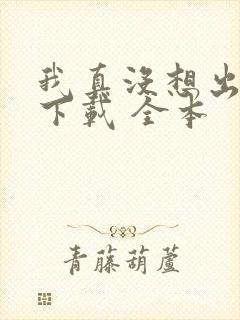 我真沒想出
下載 全本
青藤葫蘆